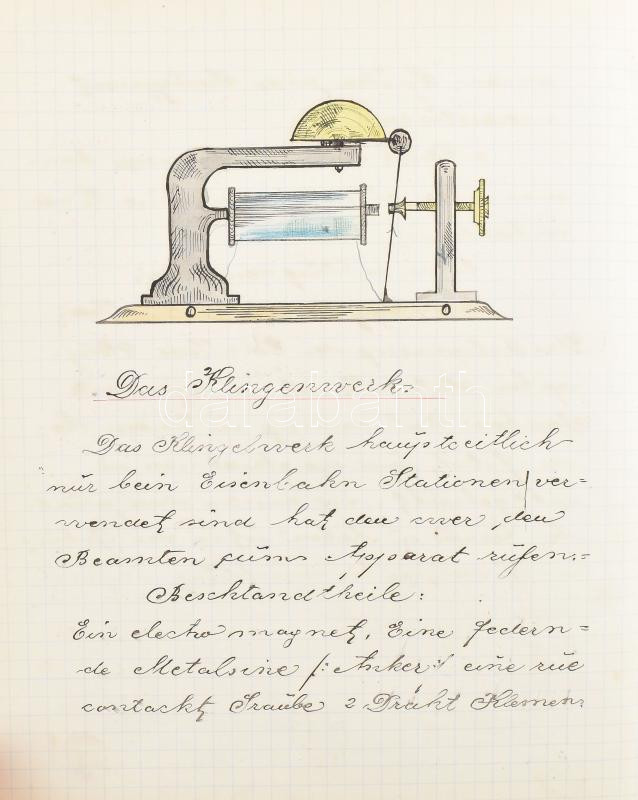 Das Klingenwerk:
darabanth
Das Klingelwerk hauptceitlich
nür bein Eisenbahn Stationen ver=
wendet sind hat den cwer den
Beamten cüms Apparat rüfen.=
Beschtandtheile:
Ein electro magnet, Eine federn=
de Metalsine /: Anker :/ eine rüe
contackt Sraübe 2 Draht Klemen: